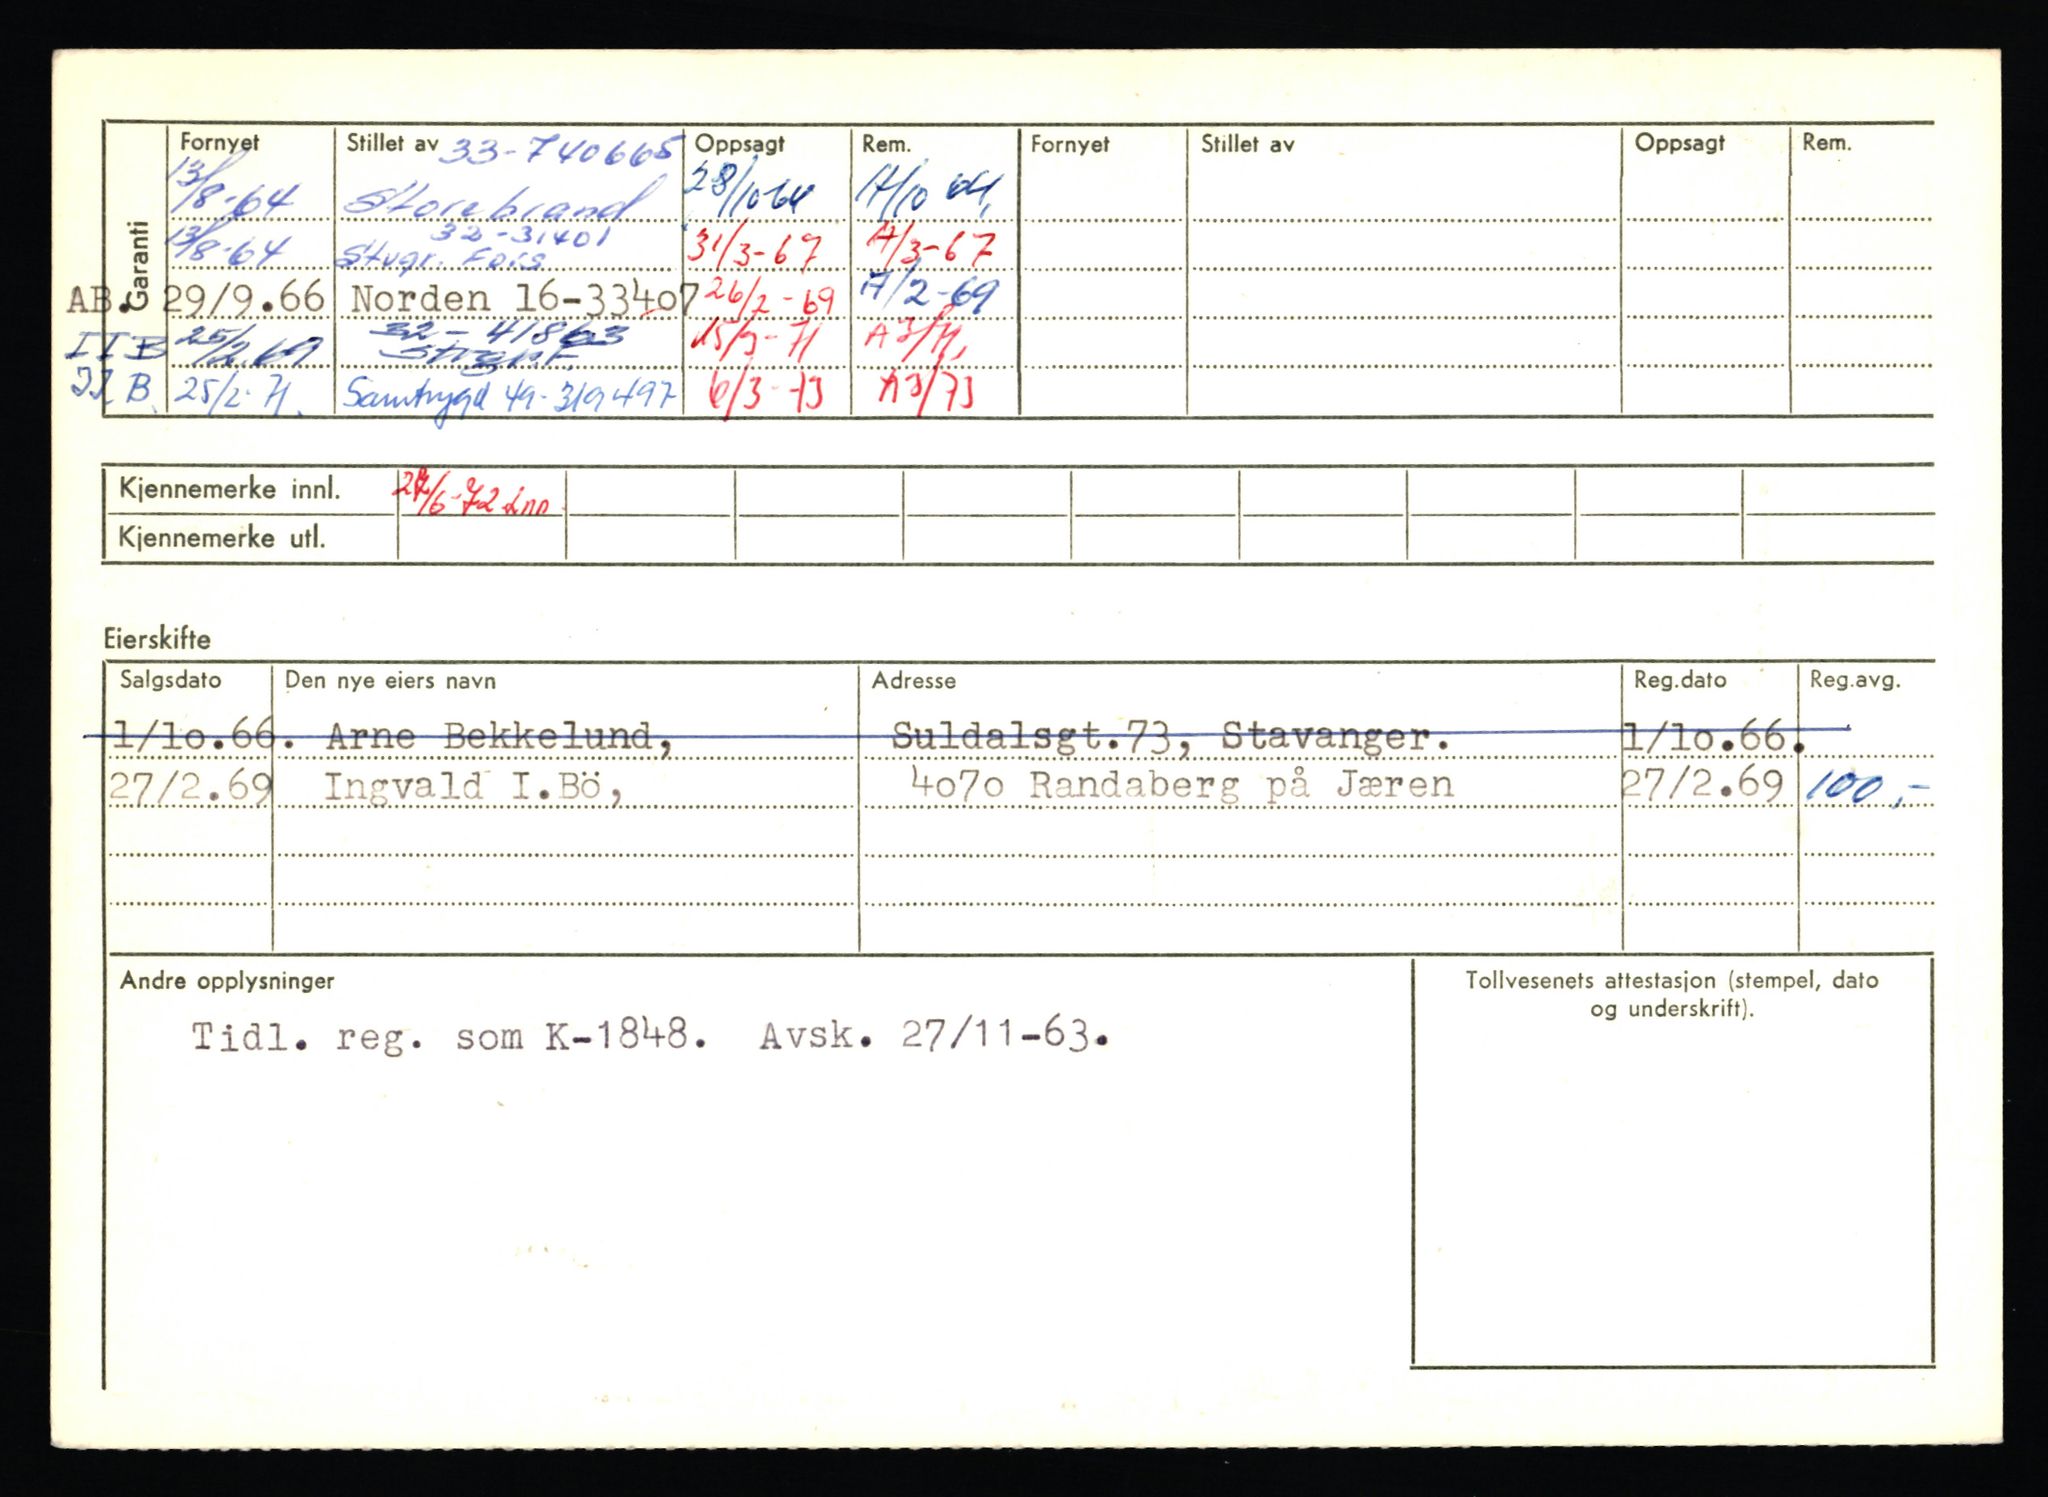 Garanti
Fornyet Stillet av 33-740665 Oppsagt Rem. Fornyet Stillet av Oppsagt Rem.
13/8-64 Storebrand 28/10-64 A/10 64,
32-31401
13/8-64 Stvgr. Fors 31/3-67 A/3-67
AB. 29/9.66 Norden 16-33407 26/2-69 A/2-69
32-41863
II B 25/2.69 15/3-71 A3/71,
II B. 25/2-71. Samtrygd 49-319497 6/3-73 A3/73
Kjennemerke innl. 27/6-72 inn.
Kjennemerke utl.
Eierskifte
Salgsdato Den nye eiers navn Adresse Reg.dato Reg.avg.
1/1o.66. Arne Bekkelund, Suldalsgt.73, Stavanger. 1/1o.66.
27/2.69 Ingvald I.Bö, 4o7o Randaberg på Jæren 27/2.69 100,-
Andre opplysninger Tollvesenets attestasjon (stempel, dato
og underskrift).
Tidl. reg. som K-1848. Avsk. 27/11-63.